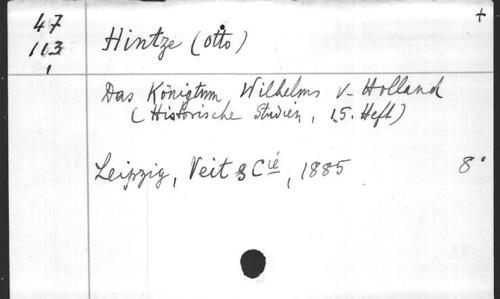 47 +
113 Hintze (Otto)
1
Das Königtum Wilhelms v. Holland
(Historische Studien, 15. Heft)
Leipzig, Veit & Cié, 1885 8°